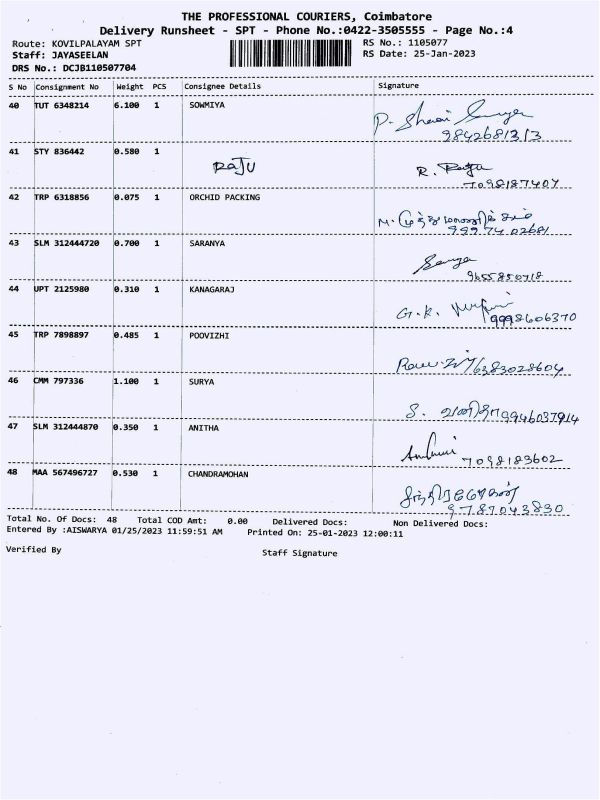 THE PROFESSIONAL COURIERS, Coimbatore
Delivery Runsheet - SPT - Phone No.:0422-3505555 - Page No.:4
Route: KOVILPALAYAM SPT RS No.: 1105077
Staff: JAYASEELAN RS Date: 25-Jan-2023
DRS No.: DCJB110507704
S No Consignment No Weight PCS Consignee Details Signature
40 TUT 6348214 6.100 1 SOWMIYA
P.
9842681313
41 STY 836442 0.580 1
RAJU R. Raju
7098187407
42 TRP 6318856 0.075 1 ORCHID PACKING
M.
99974 02681
43 SLM 312444720 0.700 1 SARANYA
9655850718
44 UPT 2125980 0.310 1 KANAGARAJ
G.K. 9998606370
45 TRP 7898897 0.485 1 POOVIZHI
6383028604
46 CMM 797336 1.100 1 SURYA
S. வனிதா 9946037914
47 SLM 312444870 0.350 1 ANITHA
7098183602
48 MAA 567496727 0.530 1 CHANDRAMOHAN
சந்திரமோகன்
9787043830
Total No. Of Docs: 48 Total COD Amt: 0.00 Delivered Docs: Non Delivered Docs:
Entered By :AISWARYA 01/25/2023 11:59:51 AM Printed On: 25-01-2023 12:00:11
Verified By Staff Signature